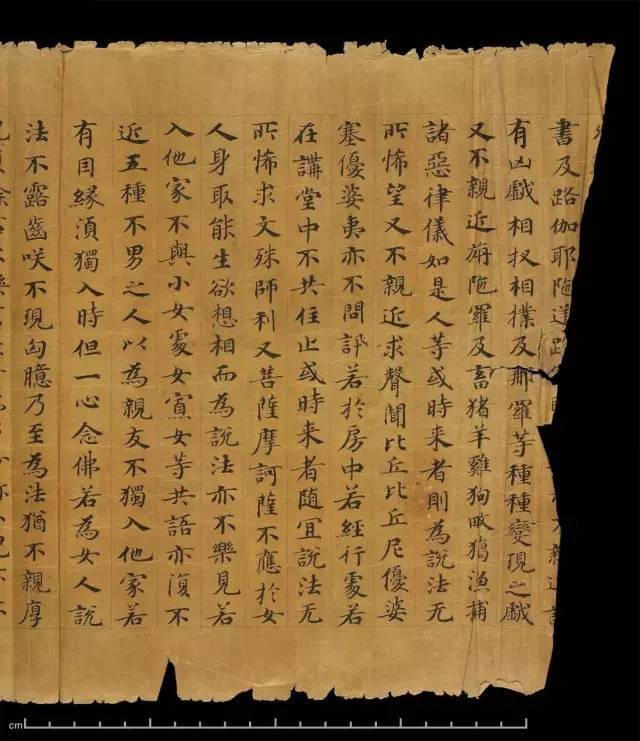 書及路伽耶陁逆路不親近諸
有凶戲相扠相撲及那羅等種種變現之戲
又不親近旃陁羅及畜猪羊雞狗畋獵漁捕
諸惡律儀如是人等或時来者則為說法无
所悕望又不親近求聲聞比丘比丘尼優婆
塞優婆夷亦不問訊若於房中若經行處若
在講堂中不共住止或時来者随宜說法无
所悕求文殊師利又菩薩摩訶薩不應於女
人身取能生欲想相而為說法亦不樂見若
入他家不與小女處女寡女等共語亦復不
近五種不男之人以為親友不獨入他家若
有因緣須獨入時但一心念佛若為女人說
法不露齒咲不現匈臆乃至為法猶不親厚
cm